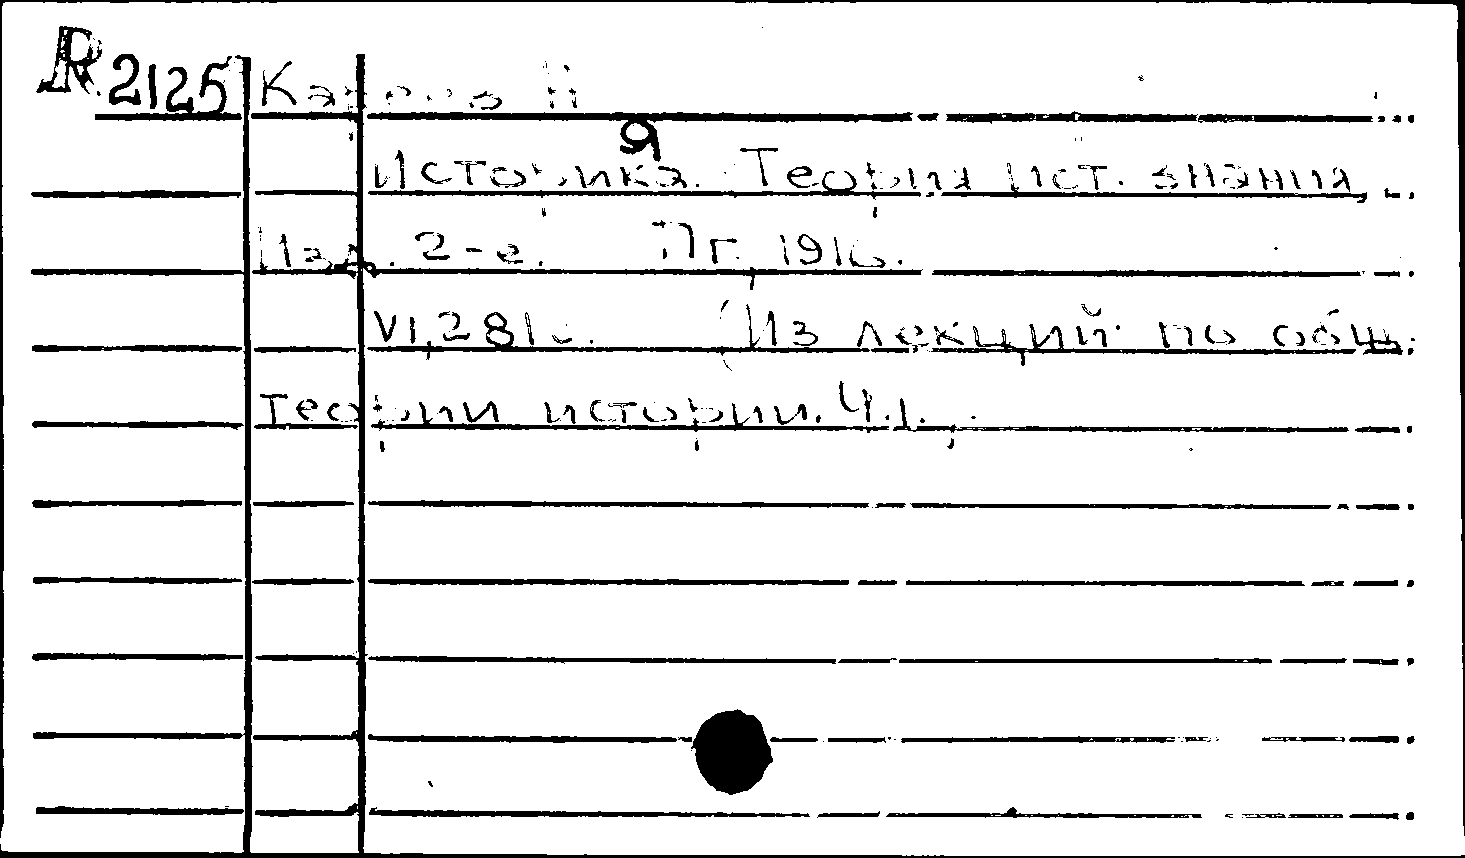 R 2125 Кареев Н
Историка. Теория ист. знания,
Изд. 2-е. Пг, 1916.
VI, 281с. (Из лекций по общ.
теории истории. Ч.1.